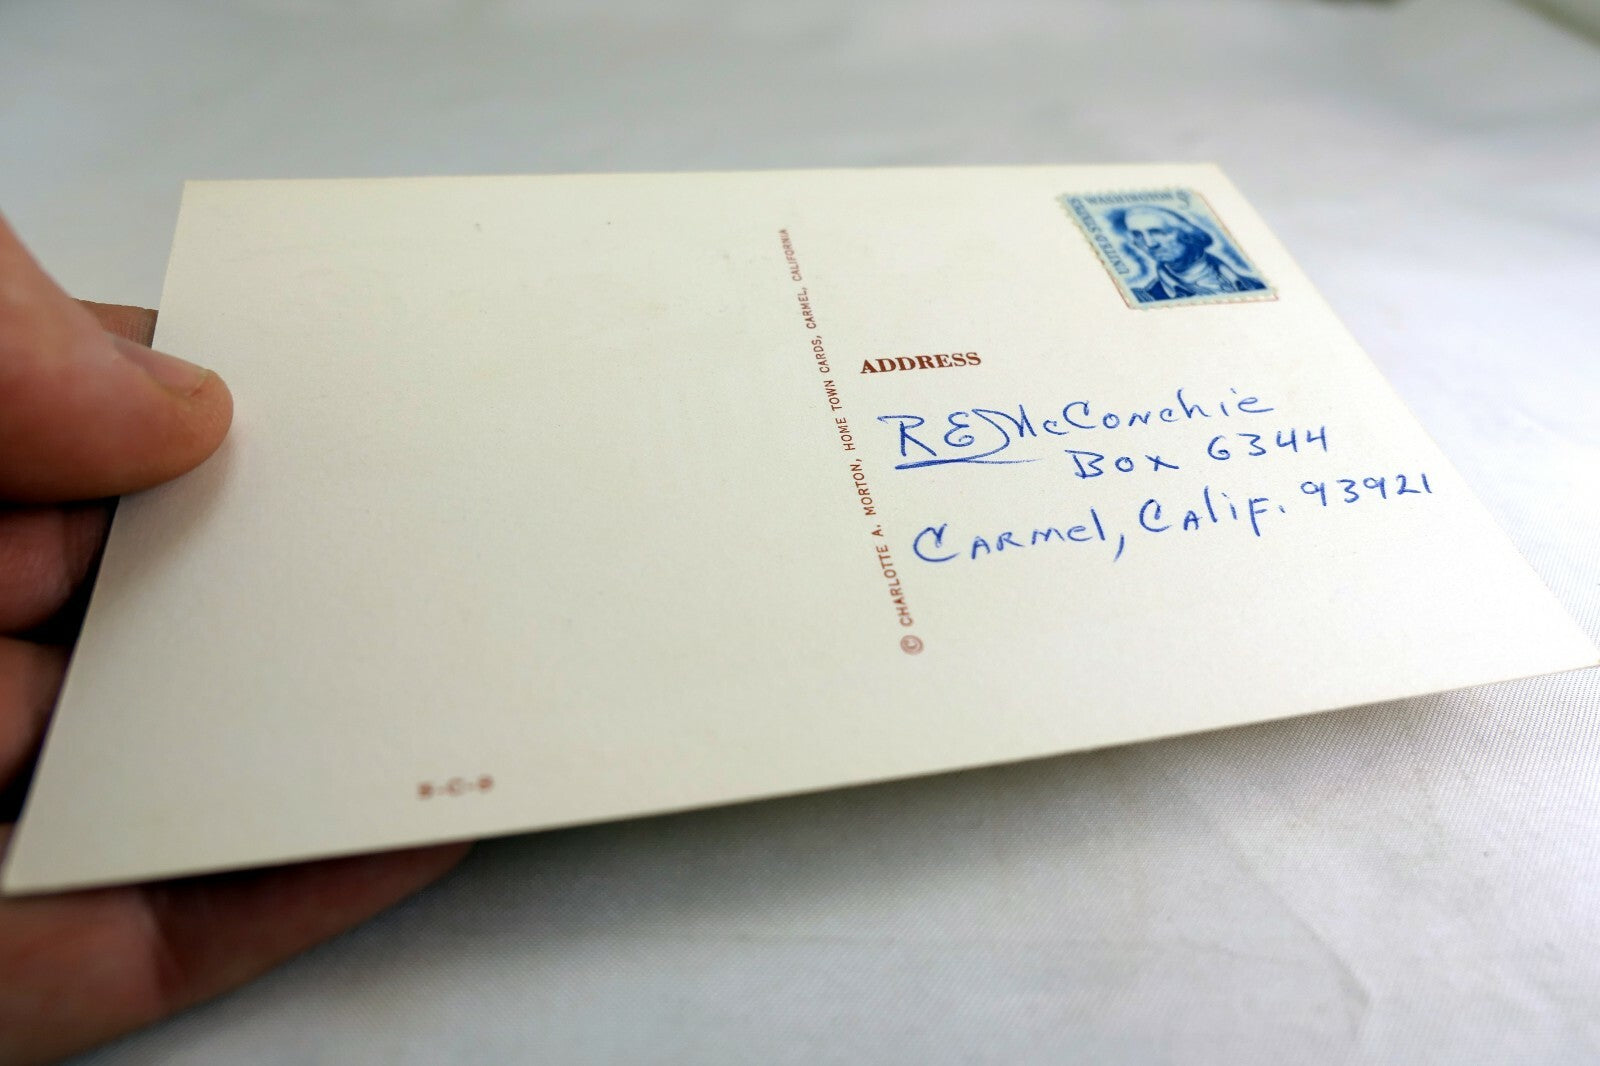 WASHINGTON 5¢
UNITED STATES
© CHARLOTTE A. MORTON, HOME TOWN CARDS, CARMEL, CALIFORNIA
ADDRESS
RE McConchie
Box 6344
Carmel, Calif. 93921